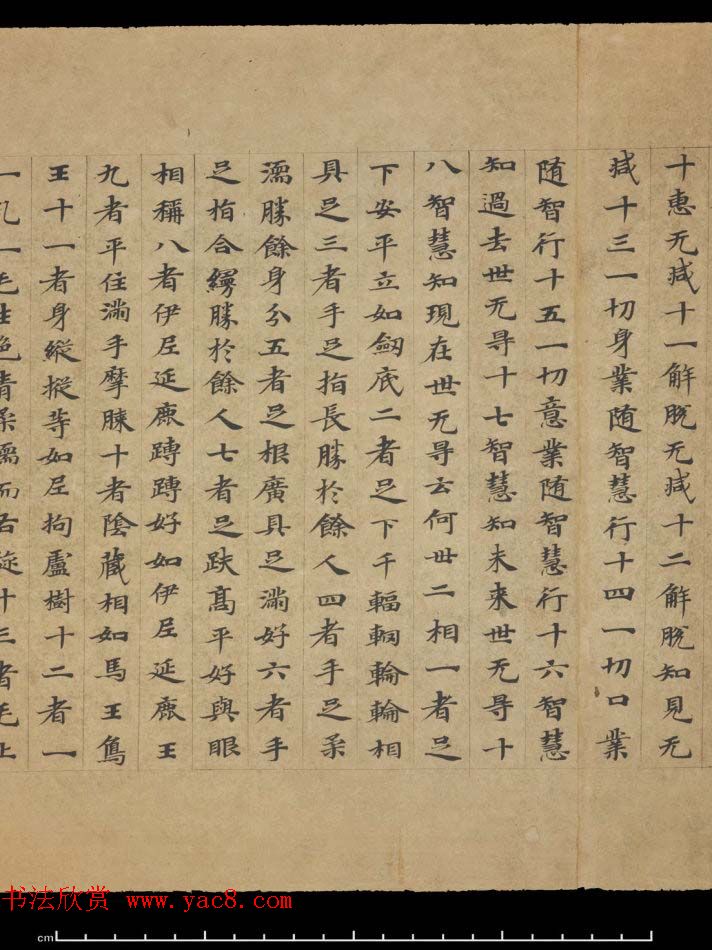 十惠无减十一解脱无减十二解脱知見无
减十三一切身業随智慧行十四一切口業
随智行十五一切意業随智慧行十六智慧
知過去世无㝵十七智慧知未來世无㝵十
八智慧知現在世无㝵云何卅二相一者足
下安平立如劒底二者足下千輻輞輪輪相
具足三者手足指長勝於餘人四者手足柔
濡勝餘身分五者足根廣具足滿好六者手
足指合縵勝於餘人七者足趺髙平好與眼
相稱八者伊尼延鹿蹲蹲好如伊尼延鹿王
九者平住滿手摩膝十者陰藏相如馬王鳥
王十一者身縱摐等如尼拘盧樹十二者一
一孔一毛生色青柔濡而右旋十三者毛上
书法欣赏 www.yac8.com
cm